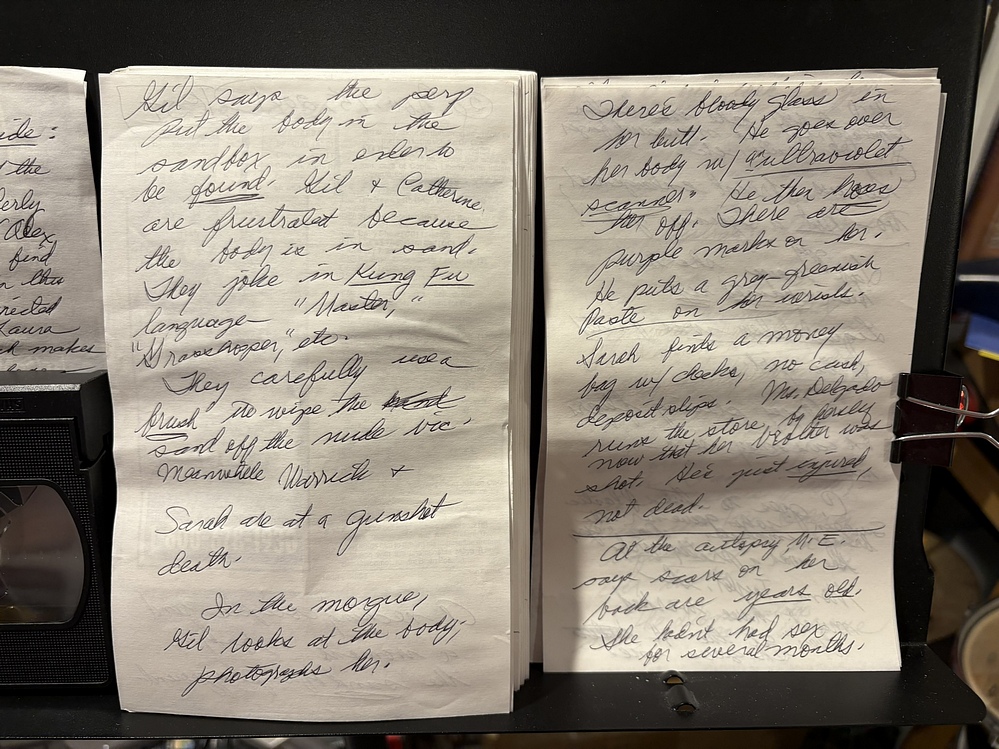 ide:
the
erly
Alex
find
in this
rected
Laura
ah makes
Gil says the perp
put the body in the
sandbox in order to
be found. Gil + Catherine
are frustrated because
the body is in sand.
They joke in Kung Fu
language - "Master,"
"Grasshopper," etc.
They carefully use a
brush to wipe the
sand off the nude vic.
Meanwhile Warrick +
Sarah are at a gunshot
death.
In the morgue,
Gil looks at the body,
photographs her.
There's bloody glass in
her butt. He goes over
her body w/ a "ultraviolet
scanner." He then hoses
her off. There are
purple marks on her.
He puts a grey-greenish
paste on her wrists.
Sarah finds a money
bag w/ checks, no cash,
deposit slips. Ms. Delgado
runs the store by herself
now that her brother was
shot. He's just injured,
not dead.
At the autopsy, M.E.
says scars on her
back are years old.
She hadn't had sex
for several months.